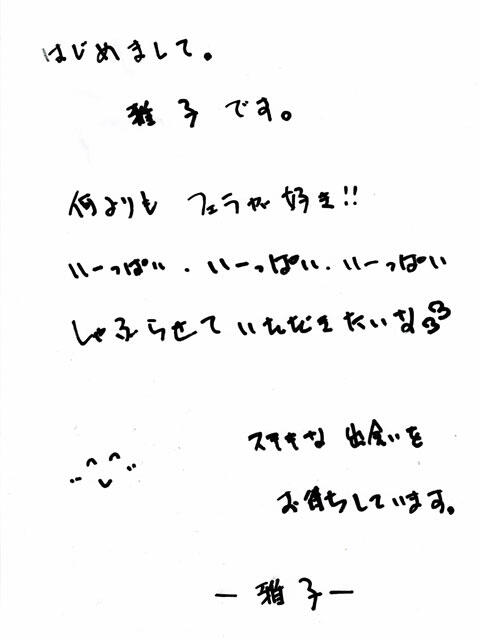 はじめまして。
雅子です。
何よりも フェラが好き!!
いーっぱい.いーっぱい.いーっぱい
しゃぶらせていただきたいな
ステキな 出会いを
お待ちしています。
ー 雅子 ー